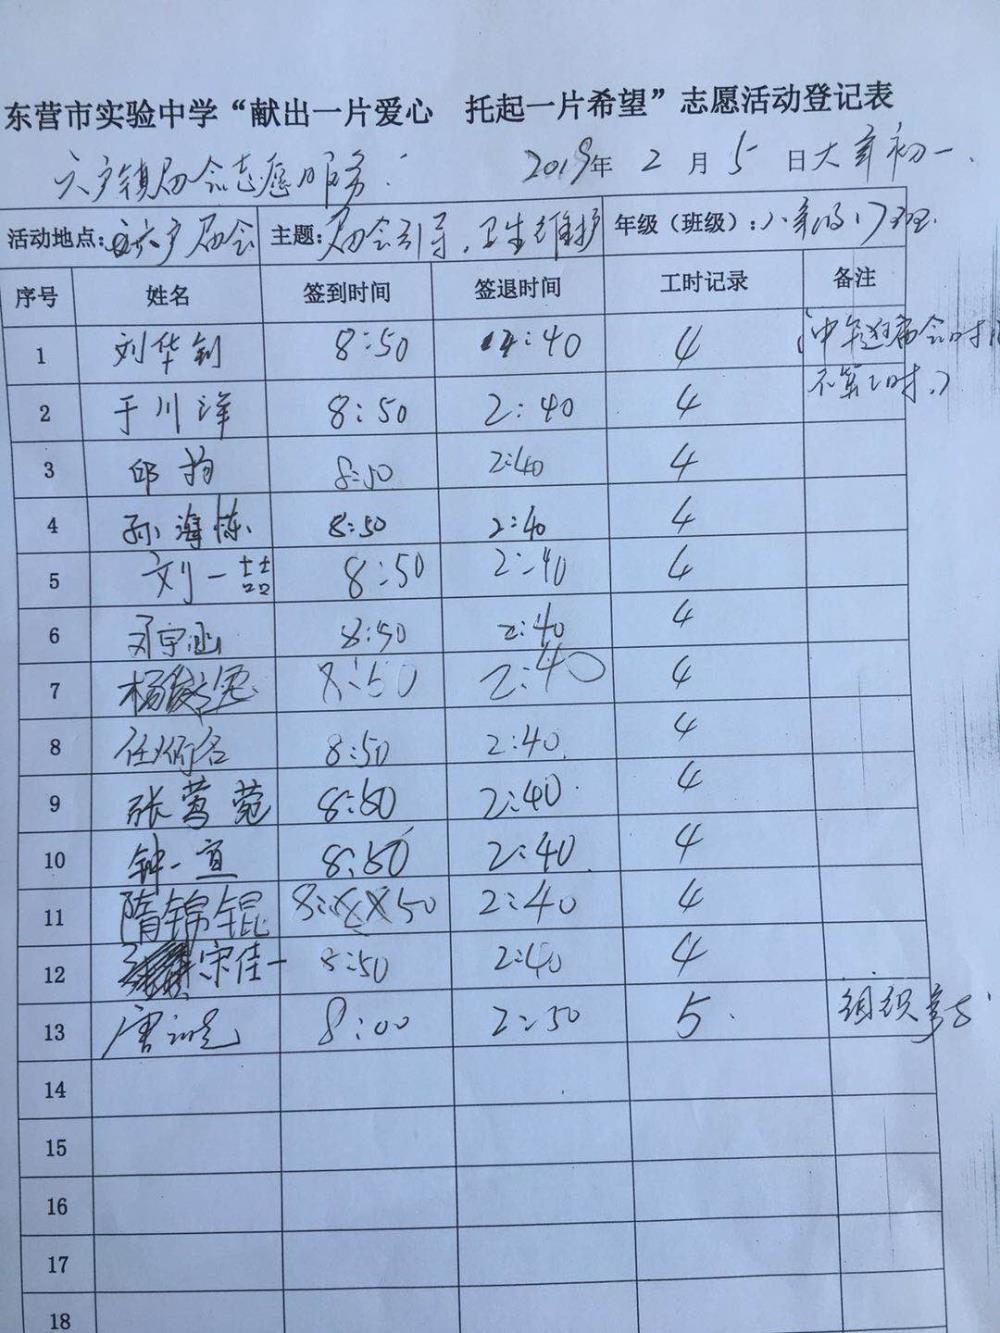 东营市实验中学“献出一片爱心 托起一片希望”志愿活动登记表
六户镇庙会志愿服务. 2019年 2 月 5 日大年初一.
活动地点: 六户庙会 主题: 庙会引导,卫生维护 年级(班级): 八年级 班.
序号 姓名 签到时间 签退时间 工时记录 备注
1 刘华钊 8:50 2:40 4 (中午逛庙会时间
不算工时.)
2 于川洋 8:50 2:40 4
3 邱 8:50 2:40 4
4 孙海栋 8:50 2:40 4
5 刘一喆 8:50 2:40 4
6 邓宇涵 8:50 2:40 4
7 杨 8:50 2:40 4
8 任 8:50 2:40 4
9 张莺菀 8:50 2:40 4
10 钟一宣 8:50 2:40 4
11 隋锦锟 8:50 2:40 4
12 宋佳一 8:50 2:40 4
13 唐 8:00 2:50 5. 组织
14
15
16
17
18